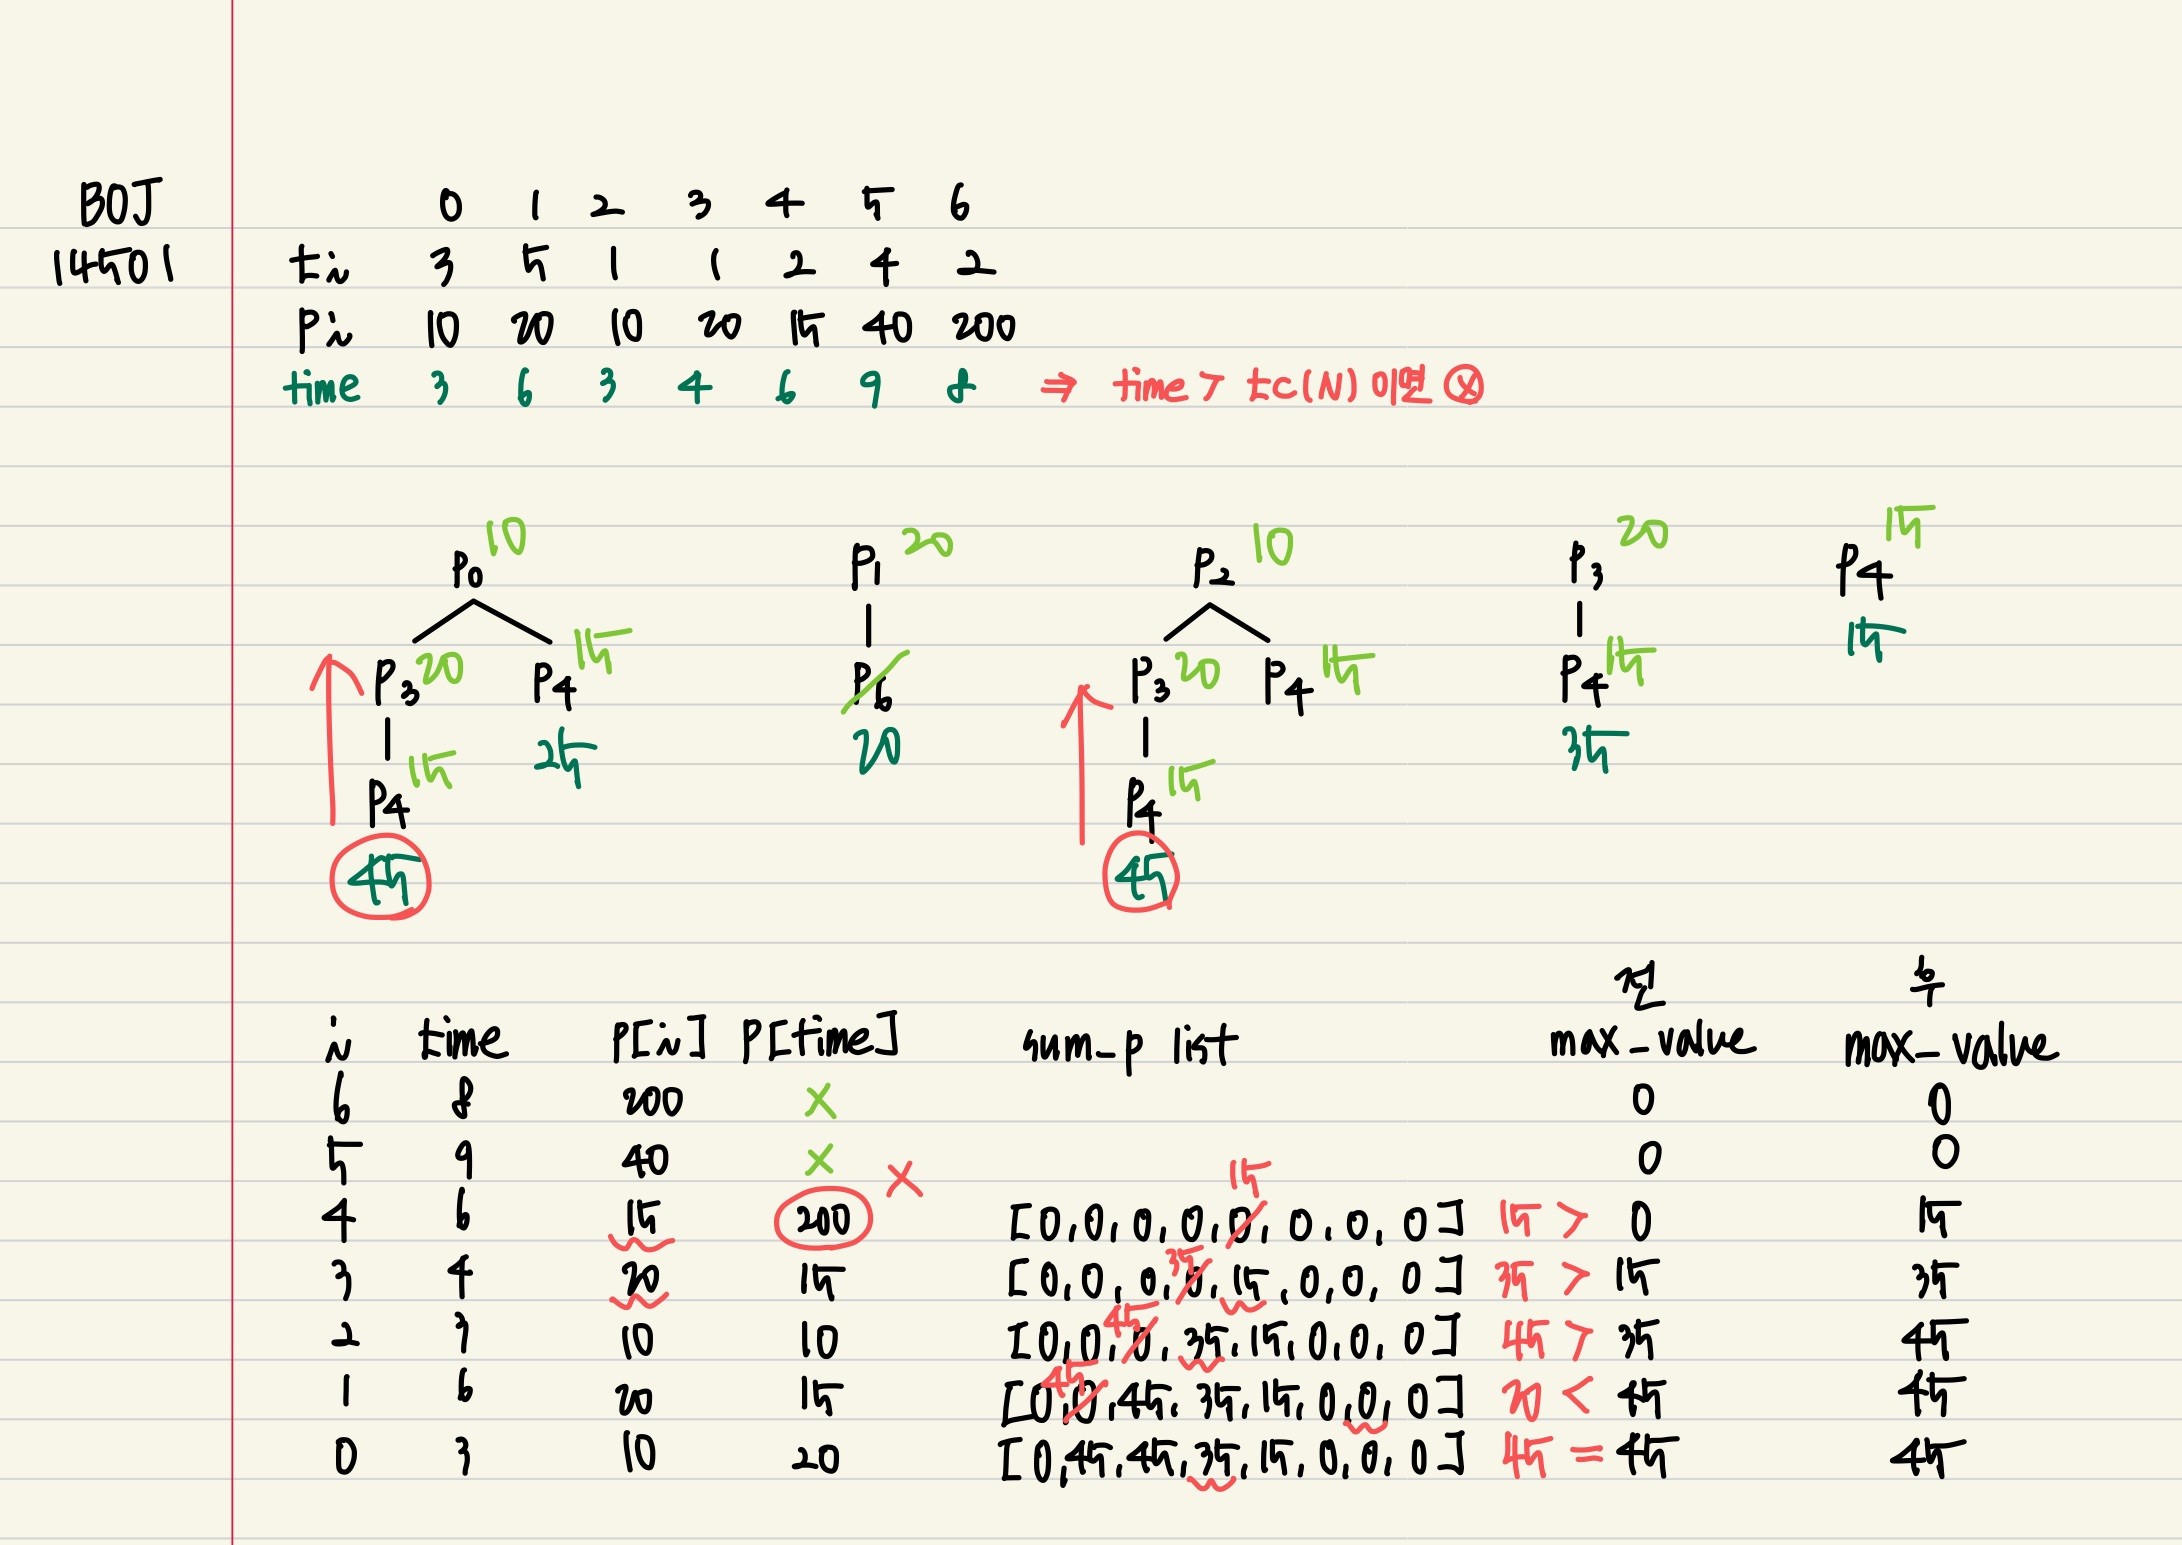 BOJ 0 1 2 3 4 5 6
14501 ti 3 5 1 1 2 4 2
Pi 10 20 10 20 15 40 200
time 3 6 3 4 6 9 8 ⇒ time > tc(N) 이면 ⓧ
P0 10 P1 20 P2 10 P3 20 P4 15
P3 20 P4 15 P6 P3 20 P4 15 P4 15 15
P4 15 25 20 P4 15 35
45 45
전 후
i time P[i] P[time] sum_p list max_value max_value
6 8 200 x 0 0
5 9 40 x 0 0
x 15
4 6 15 200 [0,0,0,0,0,0,0,0] 15 > 0 15
35
3 4 20 15 [0,0,0,0,15,0,0,0] 35 > 15 35
45
2 3 10 10 [0,0,0,35,15,0,0,0] 45 > 35 45
45
1 6 20 15 [0,0,45,35,15,0,0,0] 20 < 45 45
0 3 10 20 [0,45,45,35,15,0,0,0] 45 = 45 45